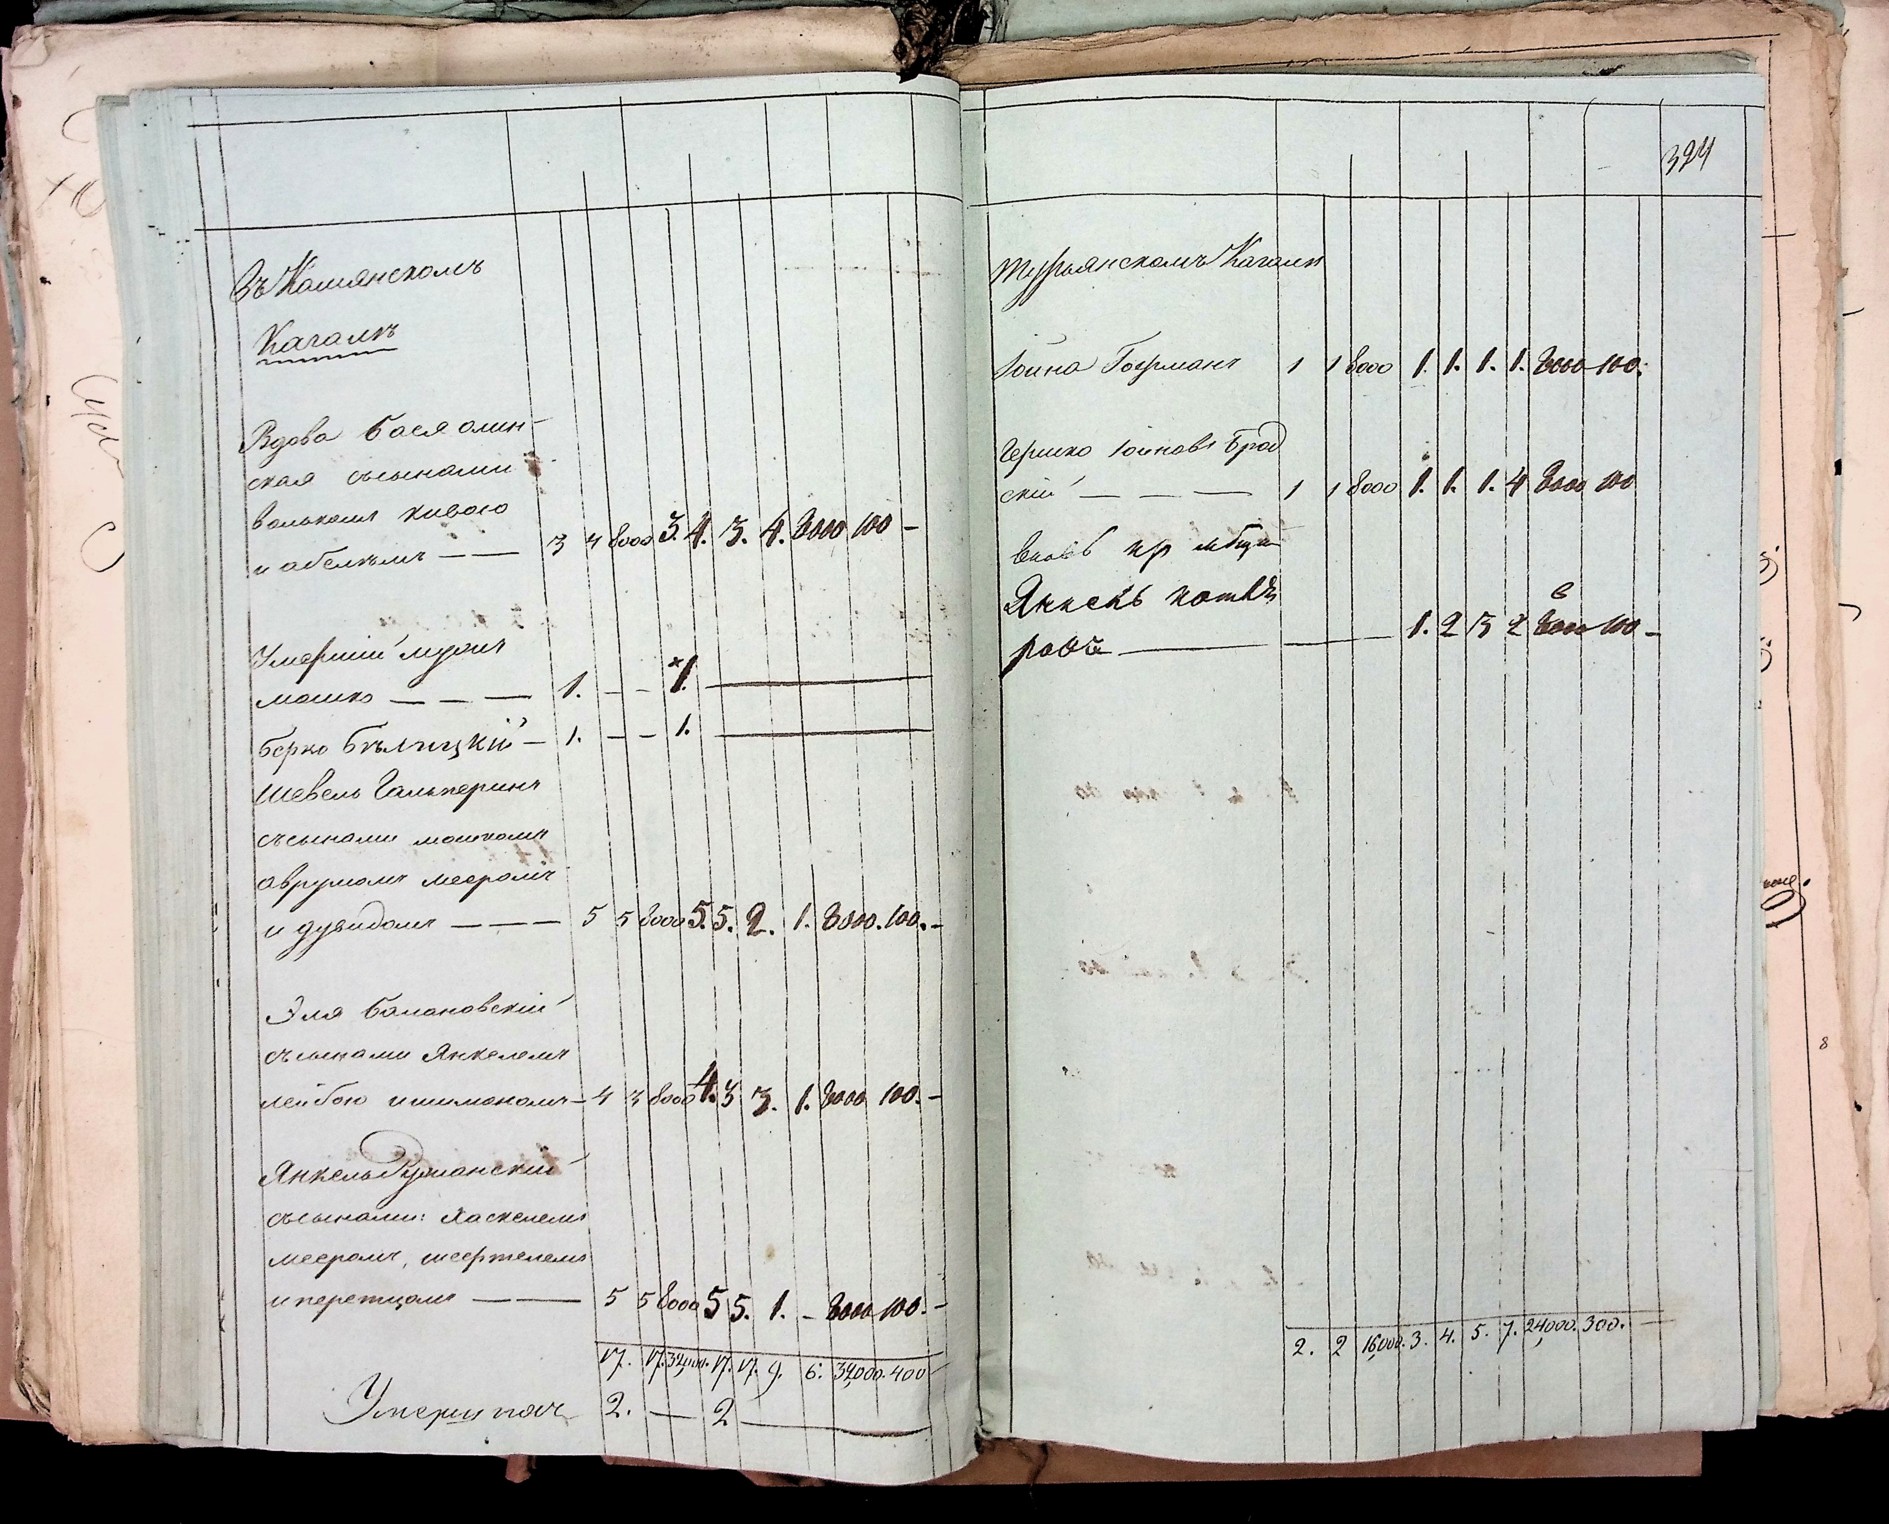 Въ Камянскомъ
Кагалѣ
Вдова Бася Олин-
ская съсынами
волькомъ кивою
и абелемъ — — 3 4 8000 3. 4. 3. 4. 8000 100 –
Умершiй
мошко — — — 1. – – 1.
берко Бѣлицкiй – 1. – – 1.
Шевель Гальперинъ
съсынами мошкомъ
аврумомъ мееромъ
и дувидомъ — — — 5 5 8000 5. 5. 2. 1. 8000. 100. –
Эля Балановскiй
съсынами Янкелемъ
лейбою ишимономъ – 4 3 8000 4. 3 3. 1. 8000 100. –
Янкель Руманскiй
съсынами: Хаскелемъ
мееромъ,
иперетцомъ — — 5 5 8000 5 5. 1. – 8000 100. –
17. 17. 32,000. 17. 17. 9. 6. 32,000. 400
2. — 2
324
Турьянскомъ Кагалѣ
Iойна Гофманъ 1 1 8000 1. 1. 1. 1. 8000 100.
Гершко Iойновъ Брод
скiй — — — 1 1 8000 1. 1. 1. 4 8000 100
вновь
Янкель
1. 2 3 2 8000 100 –
2. 2 16,000. 3. 4. 5. 7. 24,000. 300. —